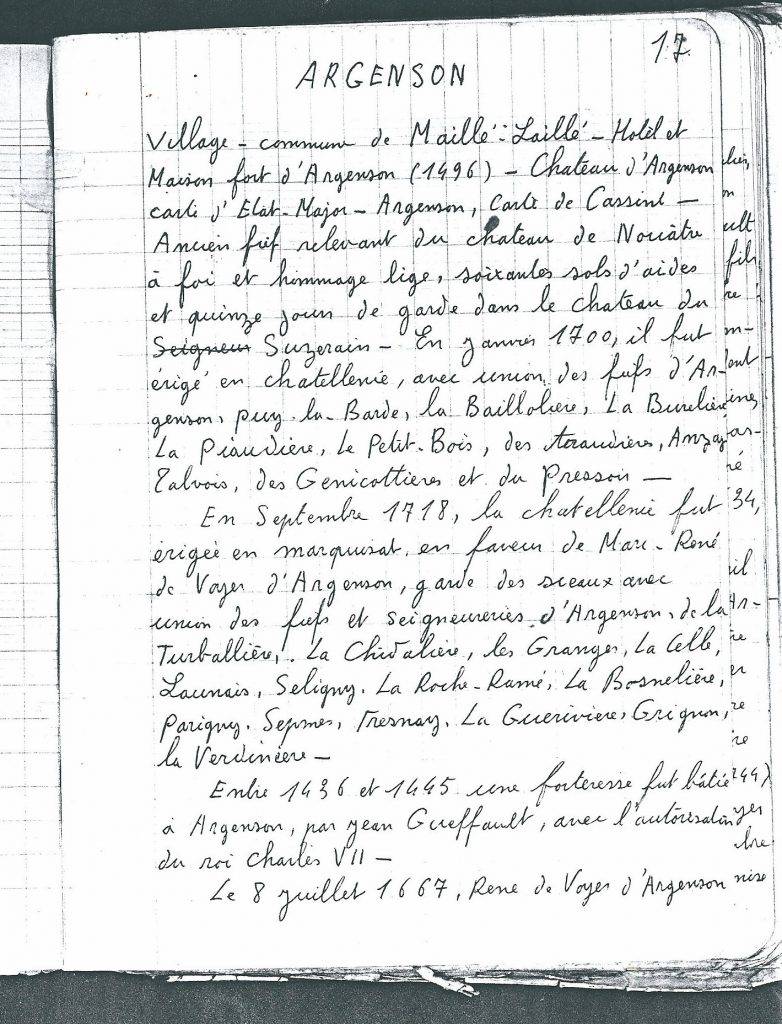 17.
ARGENSON
Village - commune de Maillé-Laillé - Hotel et
Maison fort d'Argenson (1496) - Chateau d'Argenson
carte d'Etat-Major - Argenson, Carte de Cassini -
Ancien fief relevant du chateau de Nouâtre
à foi et hommage lige, soixantes sols d'aides
et quinze jours de garde dans le chateau du
Seigneur Suzerain - En janvier 1700, il fut
érigé en chatellenie, avec union des fiefs d'Ar-
genson, puy-la-Barde, la Baillolière, La Burelière
La Piaudière, Le Petit-Bois, des Araudières, Anzay
Talvois, des Genicottières et du Presson -
En Septembre 1718, la chatellenie fut
érigée en marquisat en faveur de Marc-René
de Voyer d'Argenson, garde des sceaux avec
union des fiefs et seigneureries d'Argenson, de la
Turballière, La Chidalière, les Granges, La Celle,
Launais, Seligny, La Roche-Ramé, La Bosnelière,
Parigny, Sepmes, Tresnay, La Guerivière, Grignon,
la Verdinière -
Entre 1436 et 1445 une forteresse fut bâtie
à Argenson, par Jean Gueffault, avec l'autorisation
du roi Charles VII -
Le 8 juillet 1667, René de Voyer d'Argenson